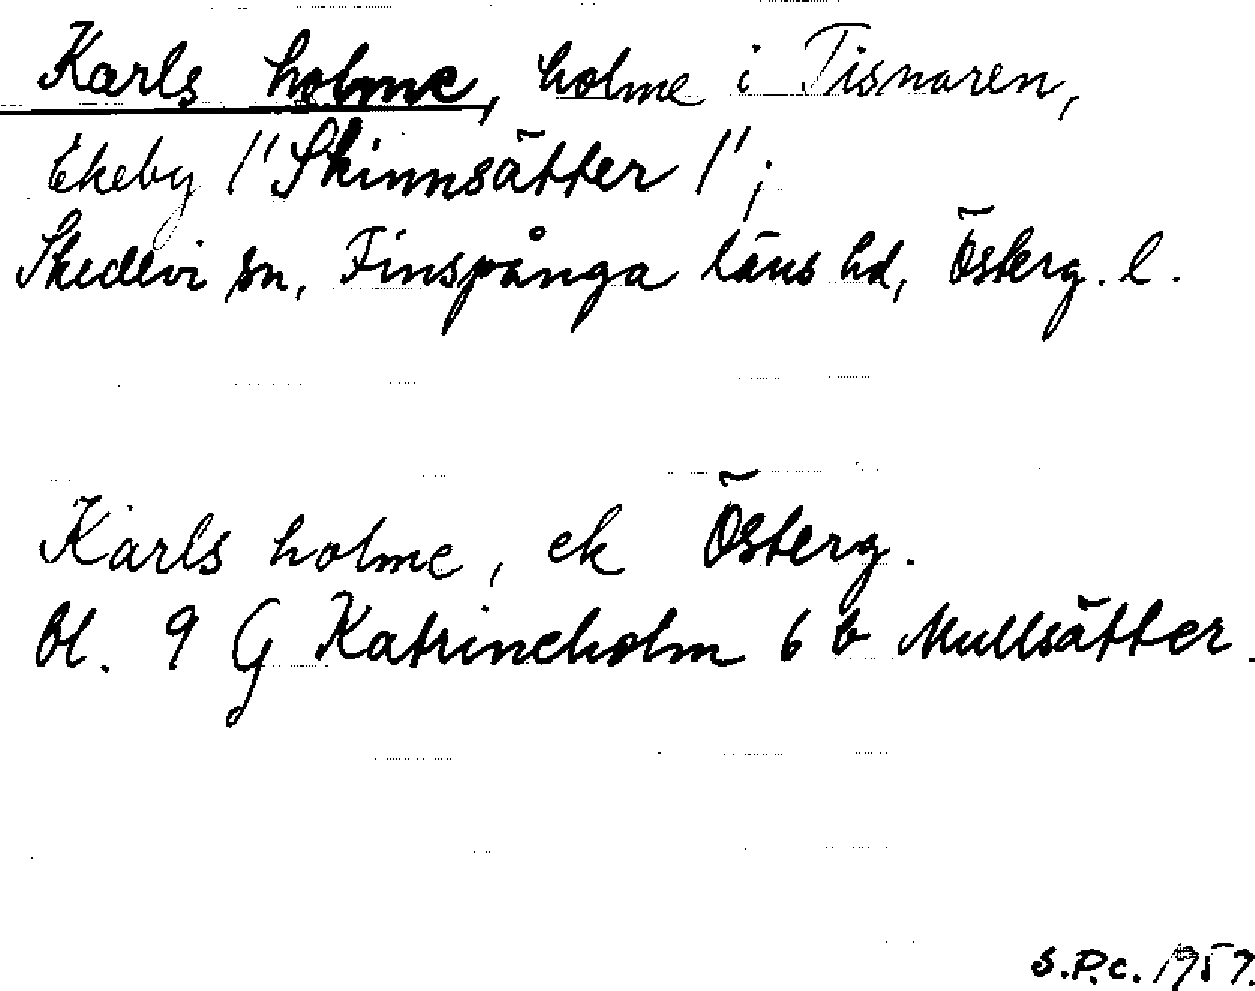 Karls holme, holme i Tisnaren,
Ekeby /' Skinnsätter /' ;
Skedevi sn, Finspånga läns hd, Österg. l.
Karls holme, ek Österg.
Bl. 9 G Katrineholm 6 b Mullsätter.
S.P.c. 1957.